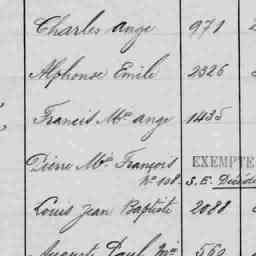 Charles ange 971
Alphonse Emile 2326
Francis Mie ange 1435
Pierre Mie François EXEMPTE
No 108. S. E. Décédé
Louis Jean Baptiste 2088
Auguste Paul Mie 560